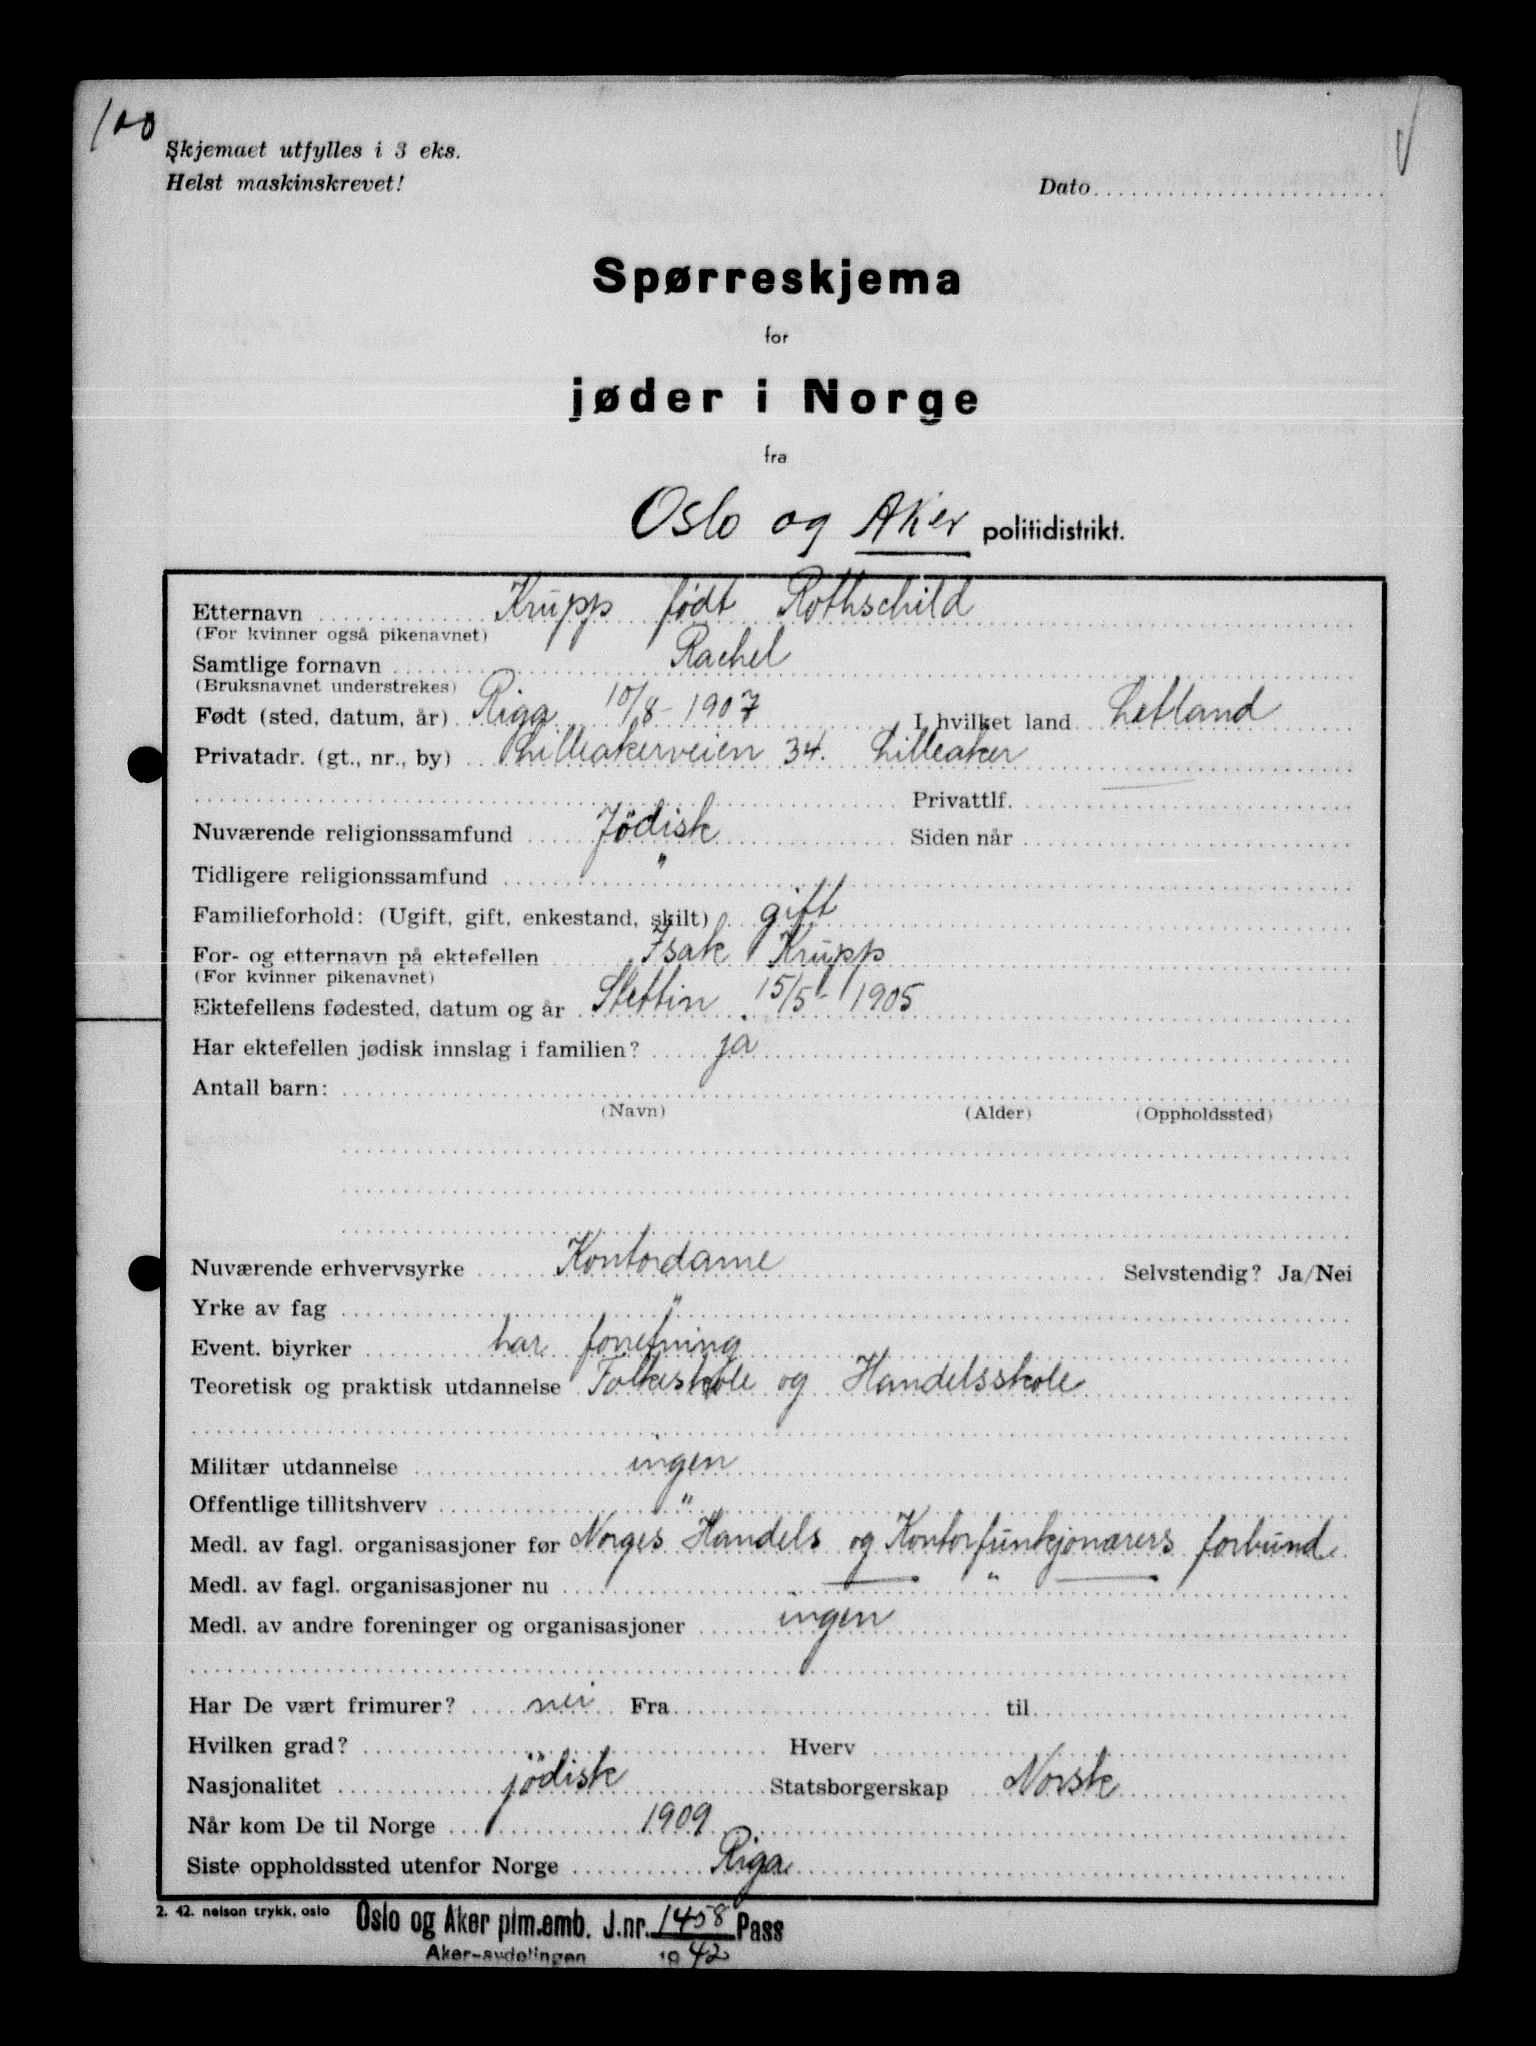 100
Skjemaet utfylles i 3 eks.
Helst maskinskrevet!
Dato
Spørreskjema
for
jøder i Norge
fra
Oslo og Aker politidistrikt.
Etternavn Krupp født Rothschild
(For kvinner også pikenavnet)
Samtlige fornavn Rachel
(Bruksnavnet understrekes)
Født (sted, datum, år) Riga 10/8-1907 I hvilket land Letland
Privatadr. (gt., nr., by) Lilleakerveien 34. Lilleaker
Privattlf.
Nuværende religionssamfund Jödisk Siden når
Tidligere religionssamfund "
Familieforhold: (Ugift, gift, enkestand, skilt) gift
For- og etternavn på ektefellen Isak Krupp
(For kvinner pikenavnet)
Ektefellens fødested, datum og år Stettin 15/5-1905
Har ektefellen jødisk innslag i familien? ja
Antall barn:
(Navn) (Alder) (Oppholdssted)
Nuværende erhvervsyrke Kontordame Selvstendig? Ja/Nei
Yrke av fag "
Event. biyrker har forretning
Teoretisk og praktisk utdannelse Folkeskole og Handelsskole
Militær utdannelse ingen
Offentlige tillitshverv "
Medl. av fagl. organisasjoner før Norges Handels og Kontorfunksjonærers forbund
Medl. av fagl. organisasjoner nu "
Medl. av andre foreninger og organisasjoner ingen
Har De vært frimurer? nei Fra til
Hvilken grad? Hverv
Nasjonalitet jödisk Statsborgerskap Norsk
Når kom De til Norge 1909
Siste oppholdssted utenfor Norge Riga
2. 42. nelson trykk, oslo
Oslo og Aker plm.emb. J.nr. 1458 Pass
Aker-avdelingen 1942